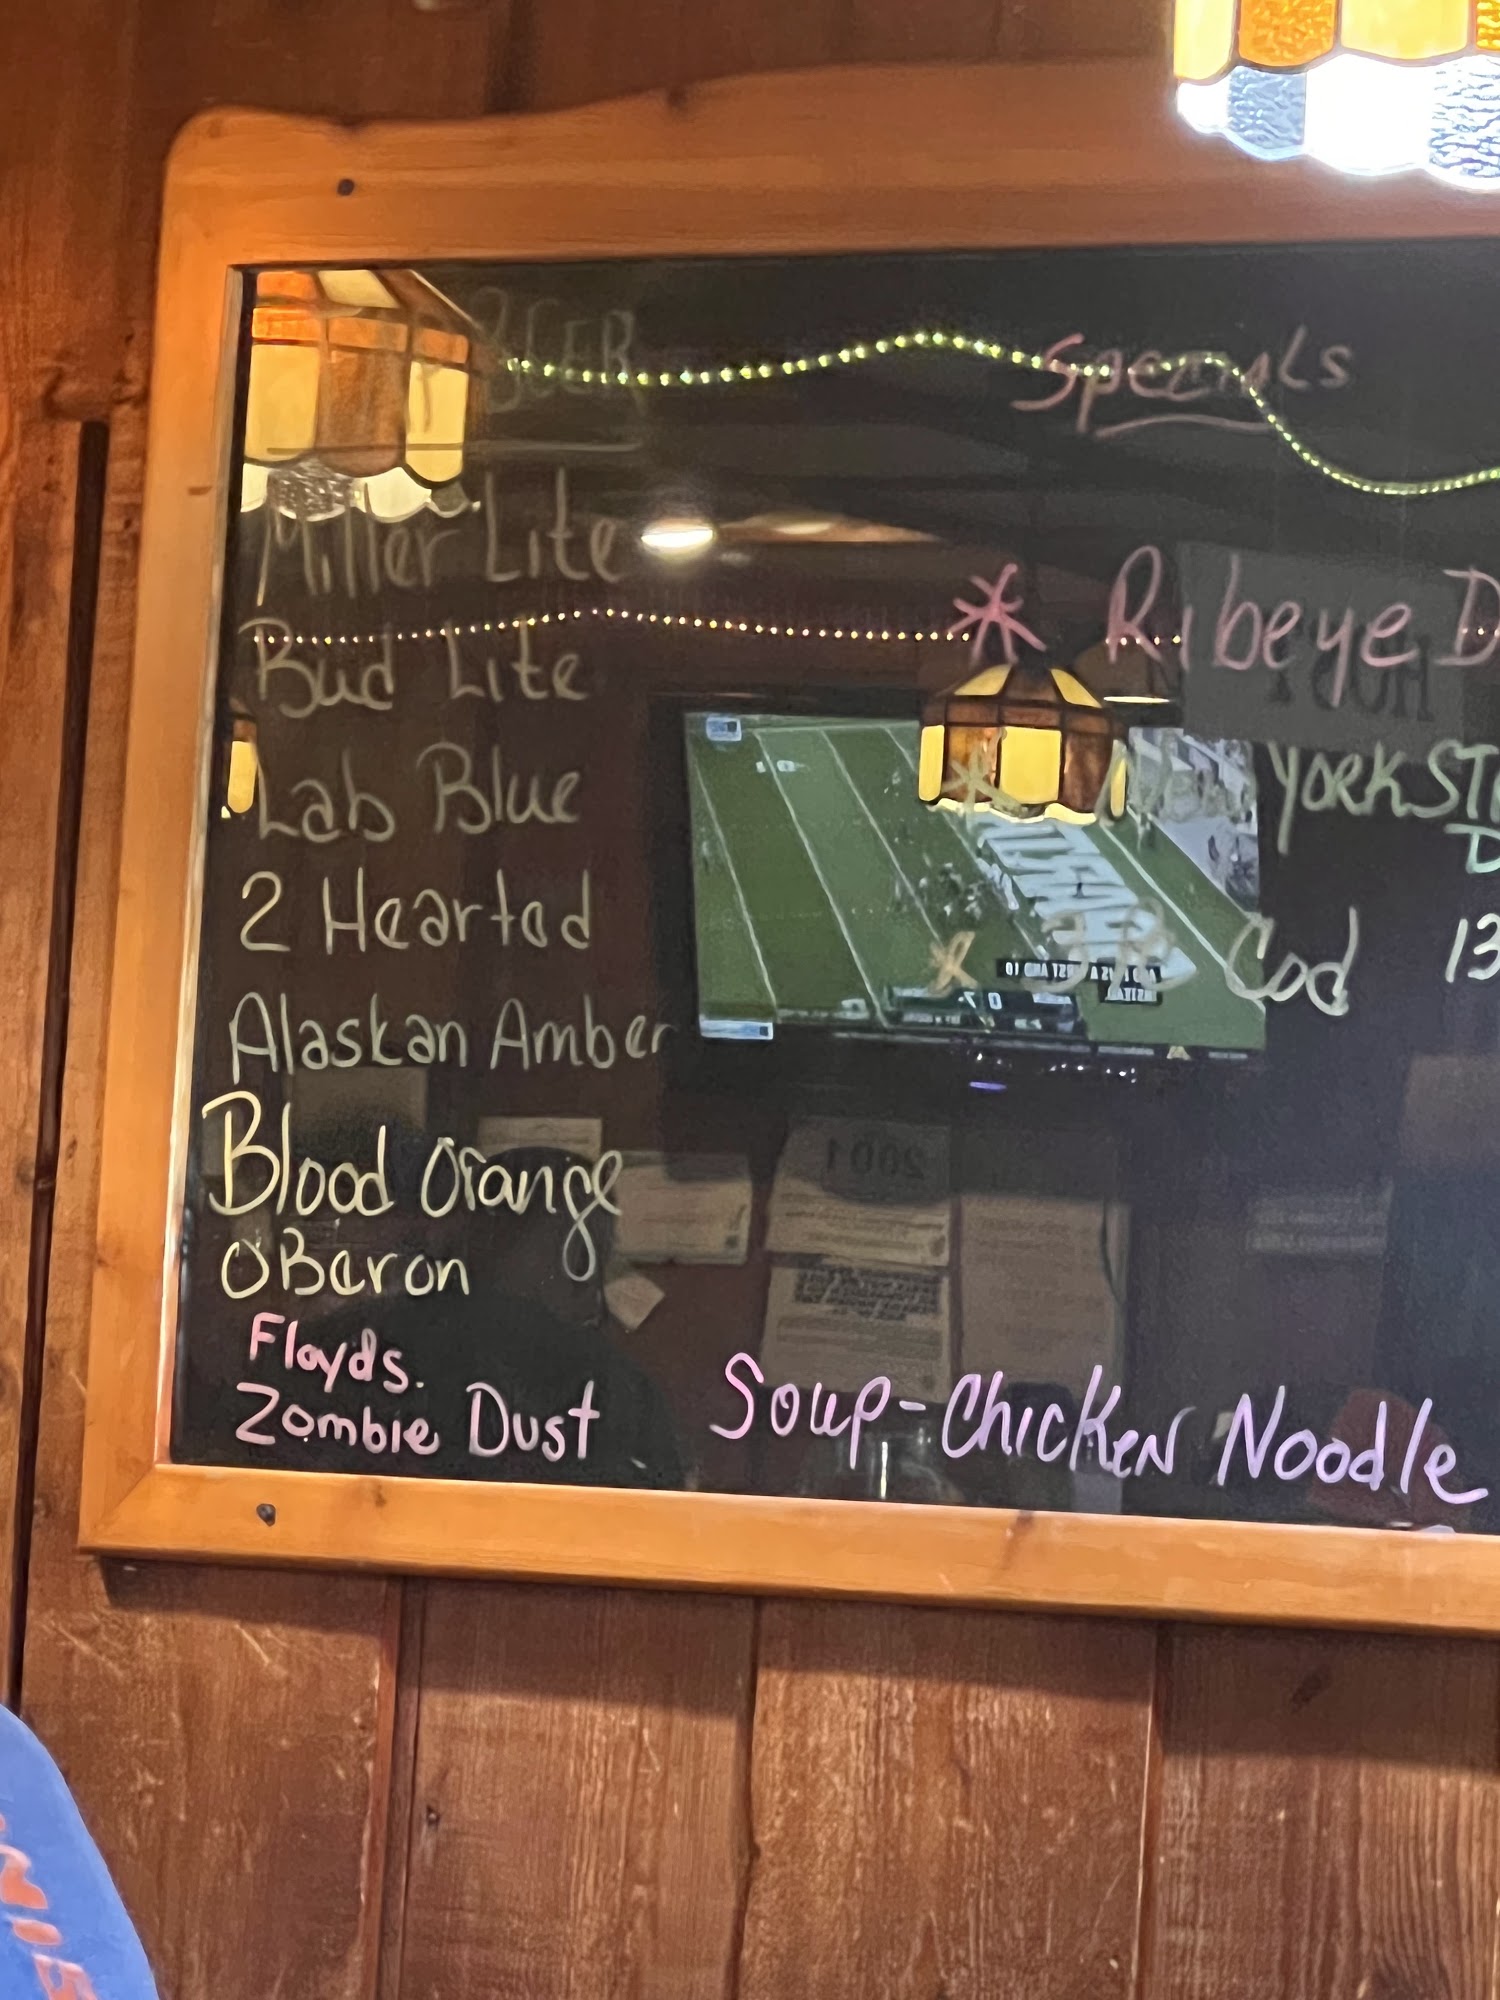 BEER
Miller Lite
Bud Lite
Lab Blue
2 Hearted
Alaskan Amber
Blood Orange
OBeron
Floyds.
Zombie Dust
Specials
* Ribeye D
* New York
D
* 3 pc Cod 13
Soup-Chicken Noodle
2001